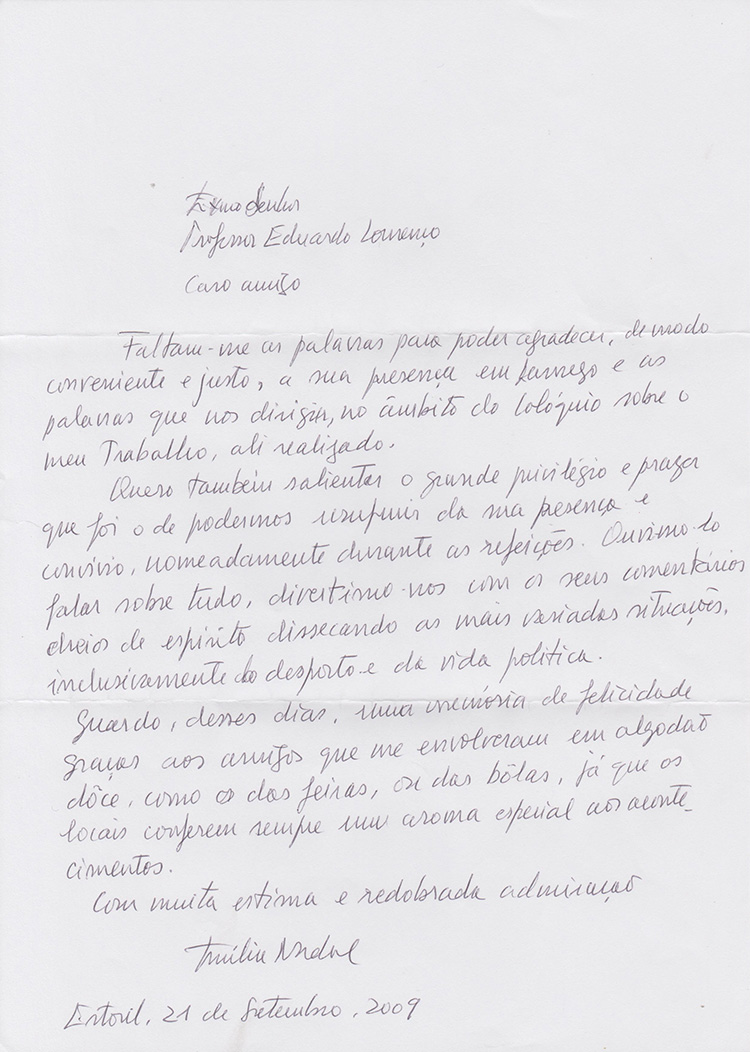 Exmo Senhor
Professor Eduardo Lourenço
Caro amigo
Faltam-me as palavras para poder agradecer, de modo
conveniente e justo, a sua presença em Lamego e as
palavras que nos dirigiu, no âmbito do Colóquio sobre o
meu Trabalho, ali realizado.
Quero também salientar o grande privilégio e prazer
que foi o de podermos usufruir da sua presença e
convívio, nomeadamente durante as refeições. Ouvimo-lo
falar sobre tudo, divertimo-nos com os seus comentários
cheios de espírito dissecando as mais variadas situações,
inclusivamente do desporto e da vida política.
Guardo, desses dias, uma memória de felicidade
graças aos amigos que me envolveram em algodão
dôce, como o das feiras, ou das bôlas, já que os
locais conferem sempre um aroma especial aos aconte-
cimentos.
Com muita estima e redobrada admiração
Emília Nadal
Estoril, 21 de Setembro, 2009